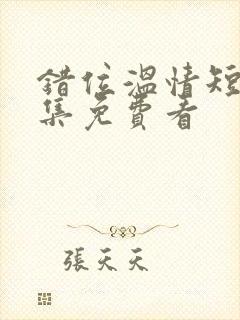 錯位溫情短
集免費看
張天天